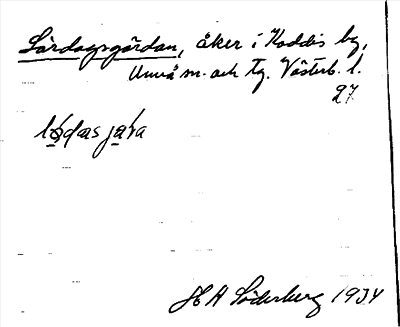 Lördagsgärdan, åker i Koddis by,
Umeå m. och tg. Västerb. l.
27.
H A Söderberg 1934